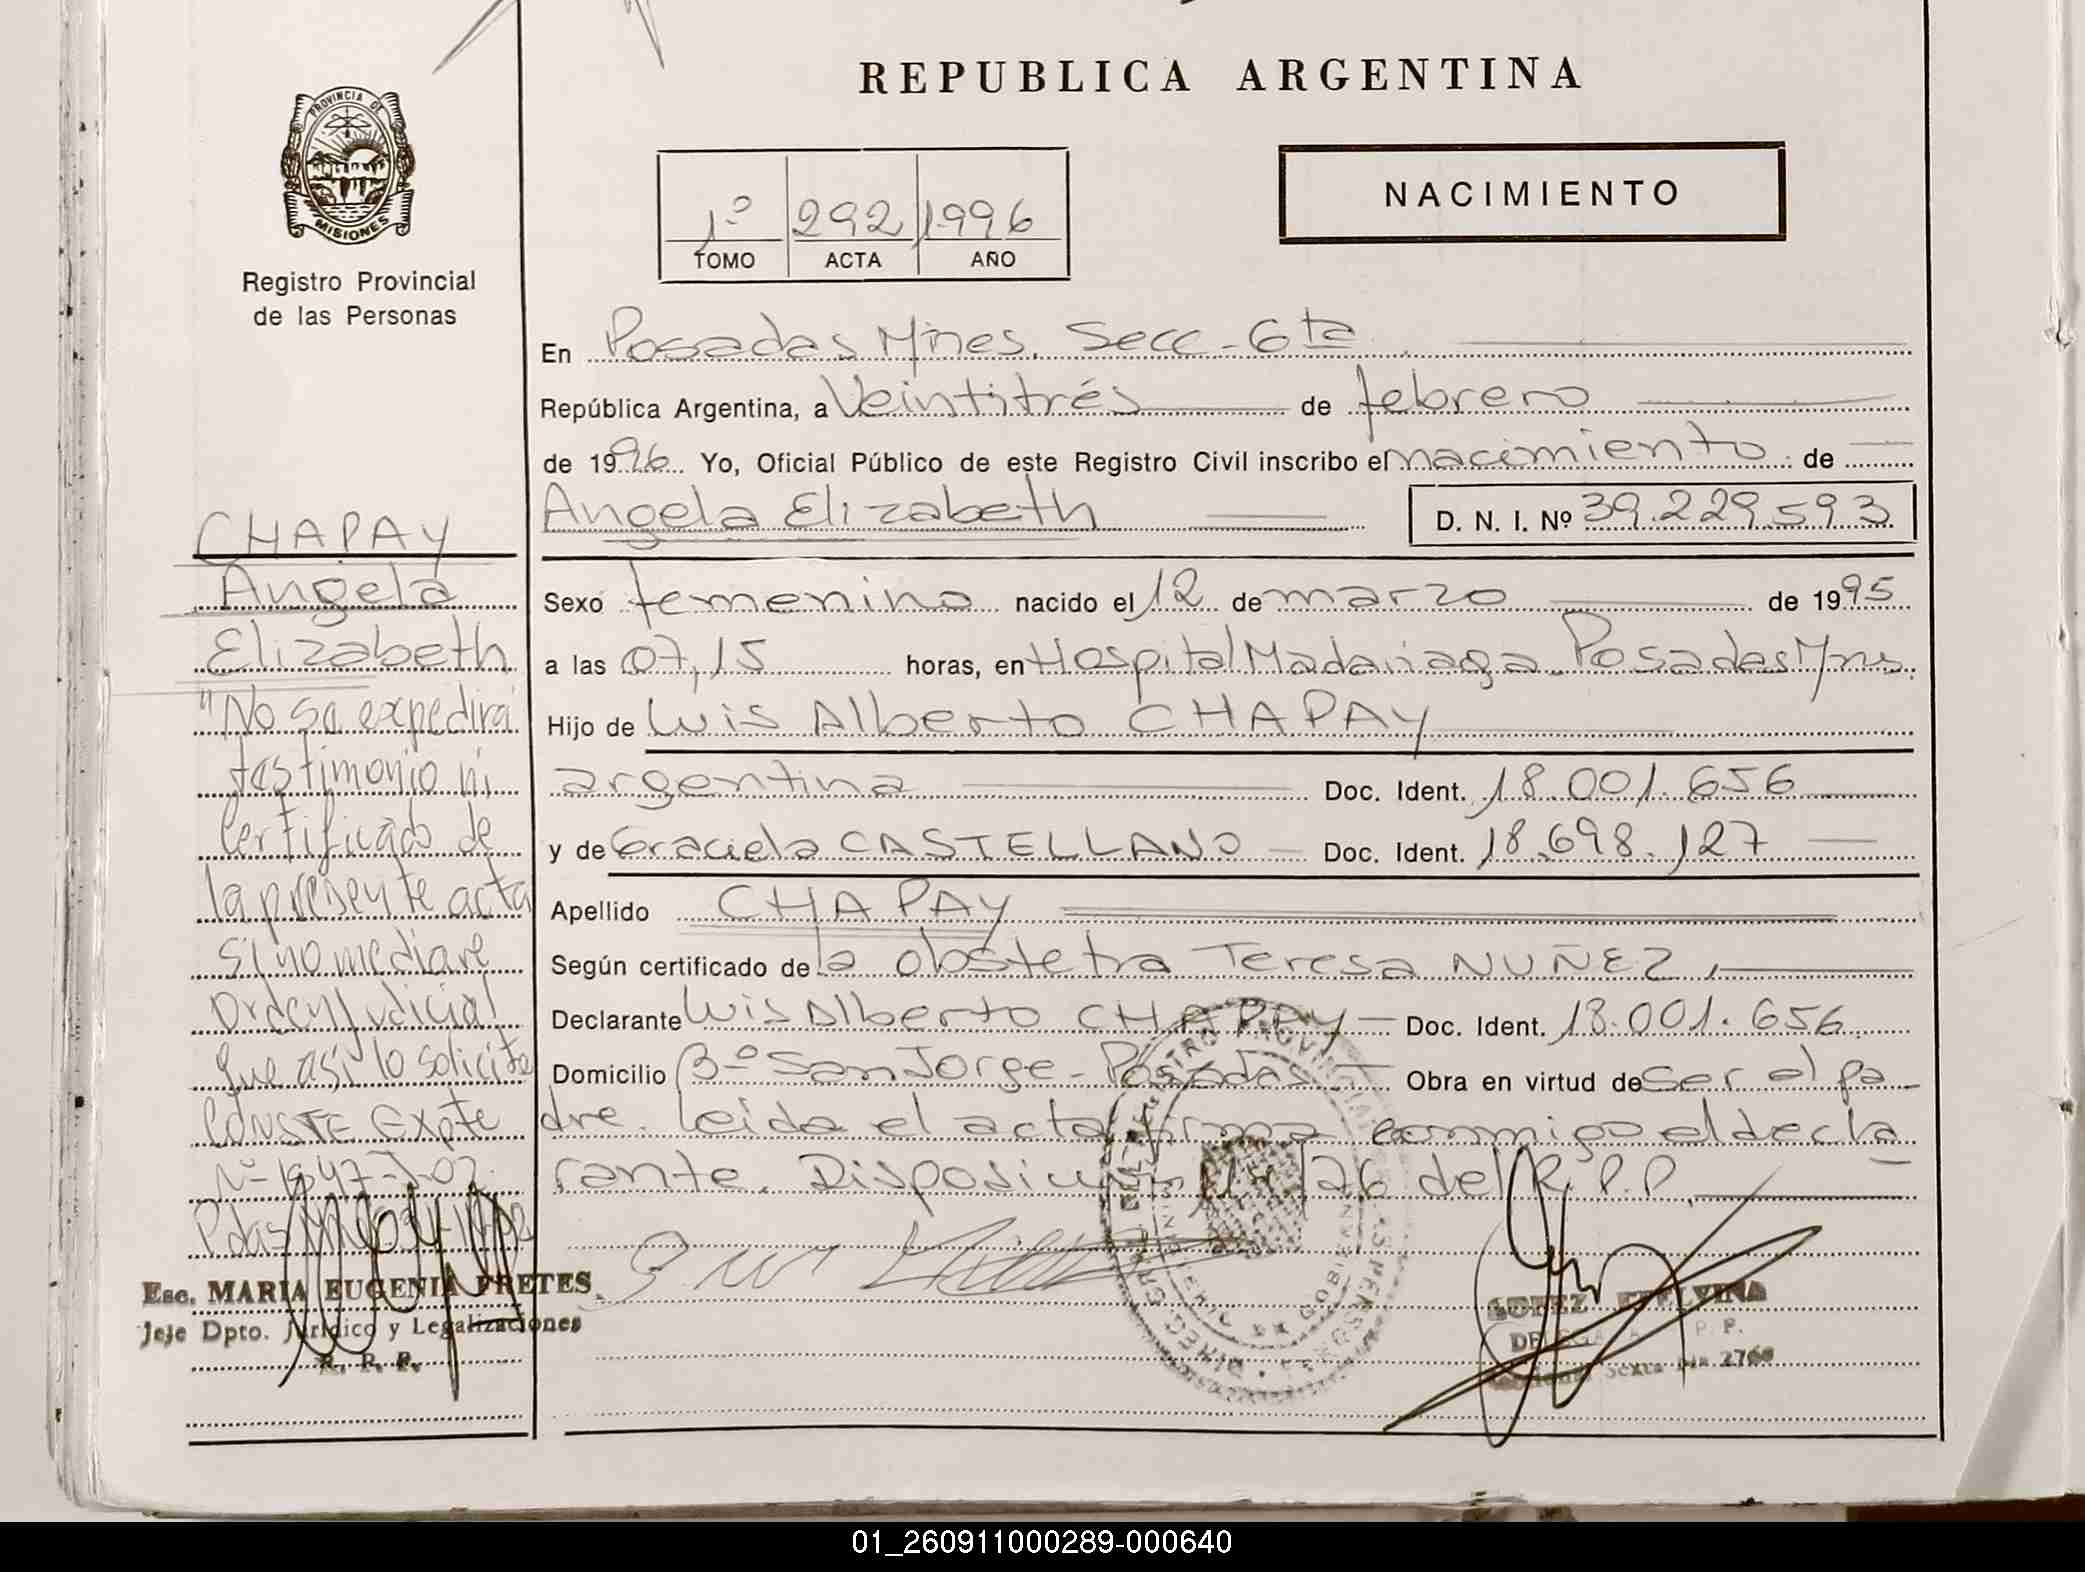 REPUBLICA ARGENTINA
PROVINCIA DE
MISIONES
Registro Provincial
de las Personas
NACIMIENTO
1º 292 1996
TOMO ACTA AÑO
En Posadas Mnes. Secc - 6ta
República Argentina, a Veintitrés de febrero
de 1996 Yo, Oficial Público de este Registro Civil inscribo el nacimiento de
Angela Elizabeth D. N. I. Nº 39.229.593
Sexo femenino nacido el 12 de marzo de 1995
a las 07,15 horas, en Hospital Madariaga Posadas Mns.
Hijo de Luis Alberto CHAPAY
argentina Doc. Ident. 18.001.656
y de Graciela CASTELLANO Doc. Ident. 18.698.127
Apellido CHAPAY
Según certificado de la obstetra Teresa NUÑEZ,
Declarante Luis Alberto CHAPAY Doc. Ident. 18.001.656
Domicilio Bº San Jorge - Posadas Obra en virtud de ser el pa
dre. Leida el acta firma conmigo el decla
rante. Disposición 14/26 del R.P.P.
CHAPAY
Angela
Elizabeth
"No se expedirá
testimonio ni
Certificado de
la presente acta
si no mediare
Orden Judicial
que así lo solicite
CONSTE Expte
Nº 1947-J-02.
Pdas
Esc. MARIA EUGENIA FRETES
Jefe Dpto. Jurídico y Legalizaciones
R. P. P.
01_260911000289-000640